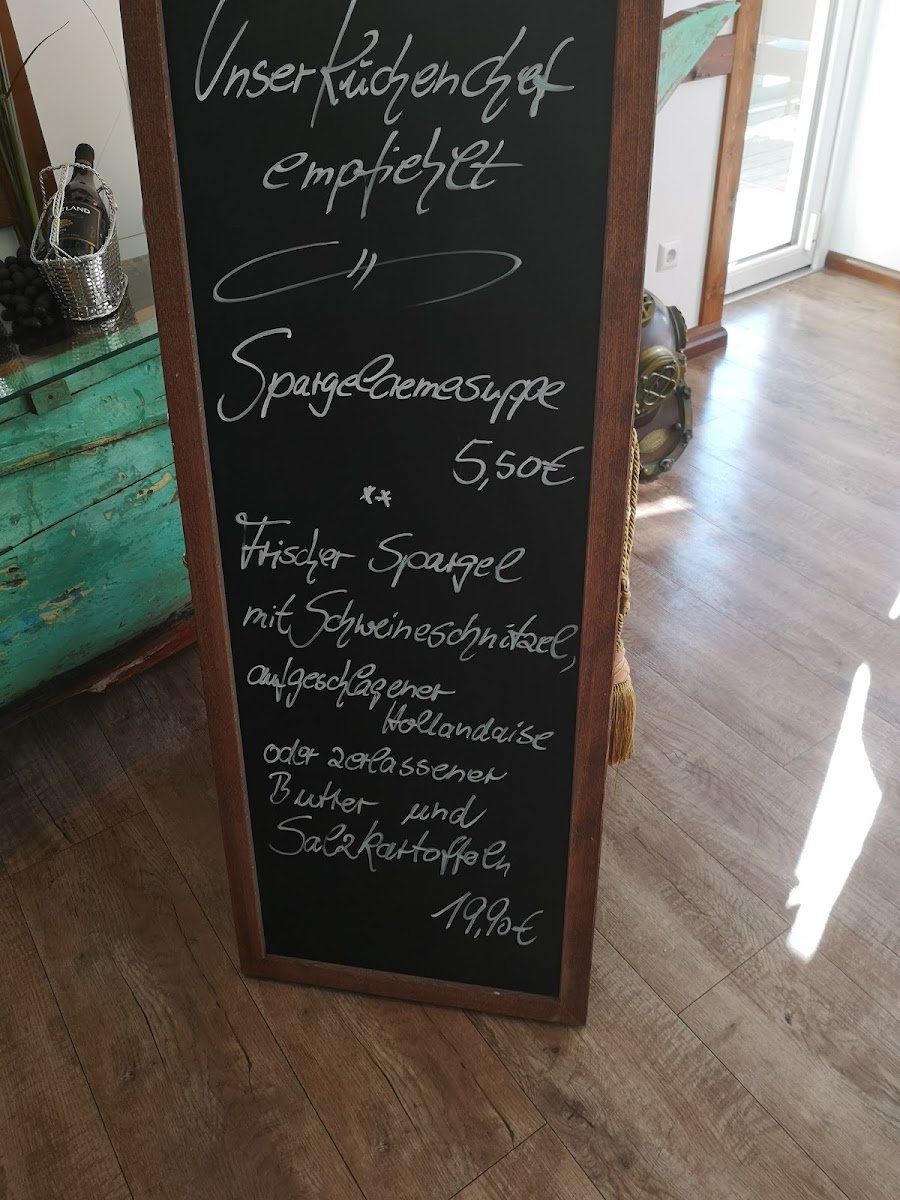 Unser Küchenchef
empfiehlt
Spargelcremesuppe
5,50€
**
Frischer Spargel
mit Schweineschnitzel,
aufgeschlagener
Hollandaise
oder zerlassener
Butter und
Salzkartoffeln
19,90€